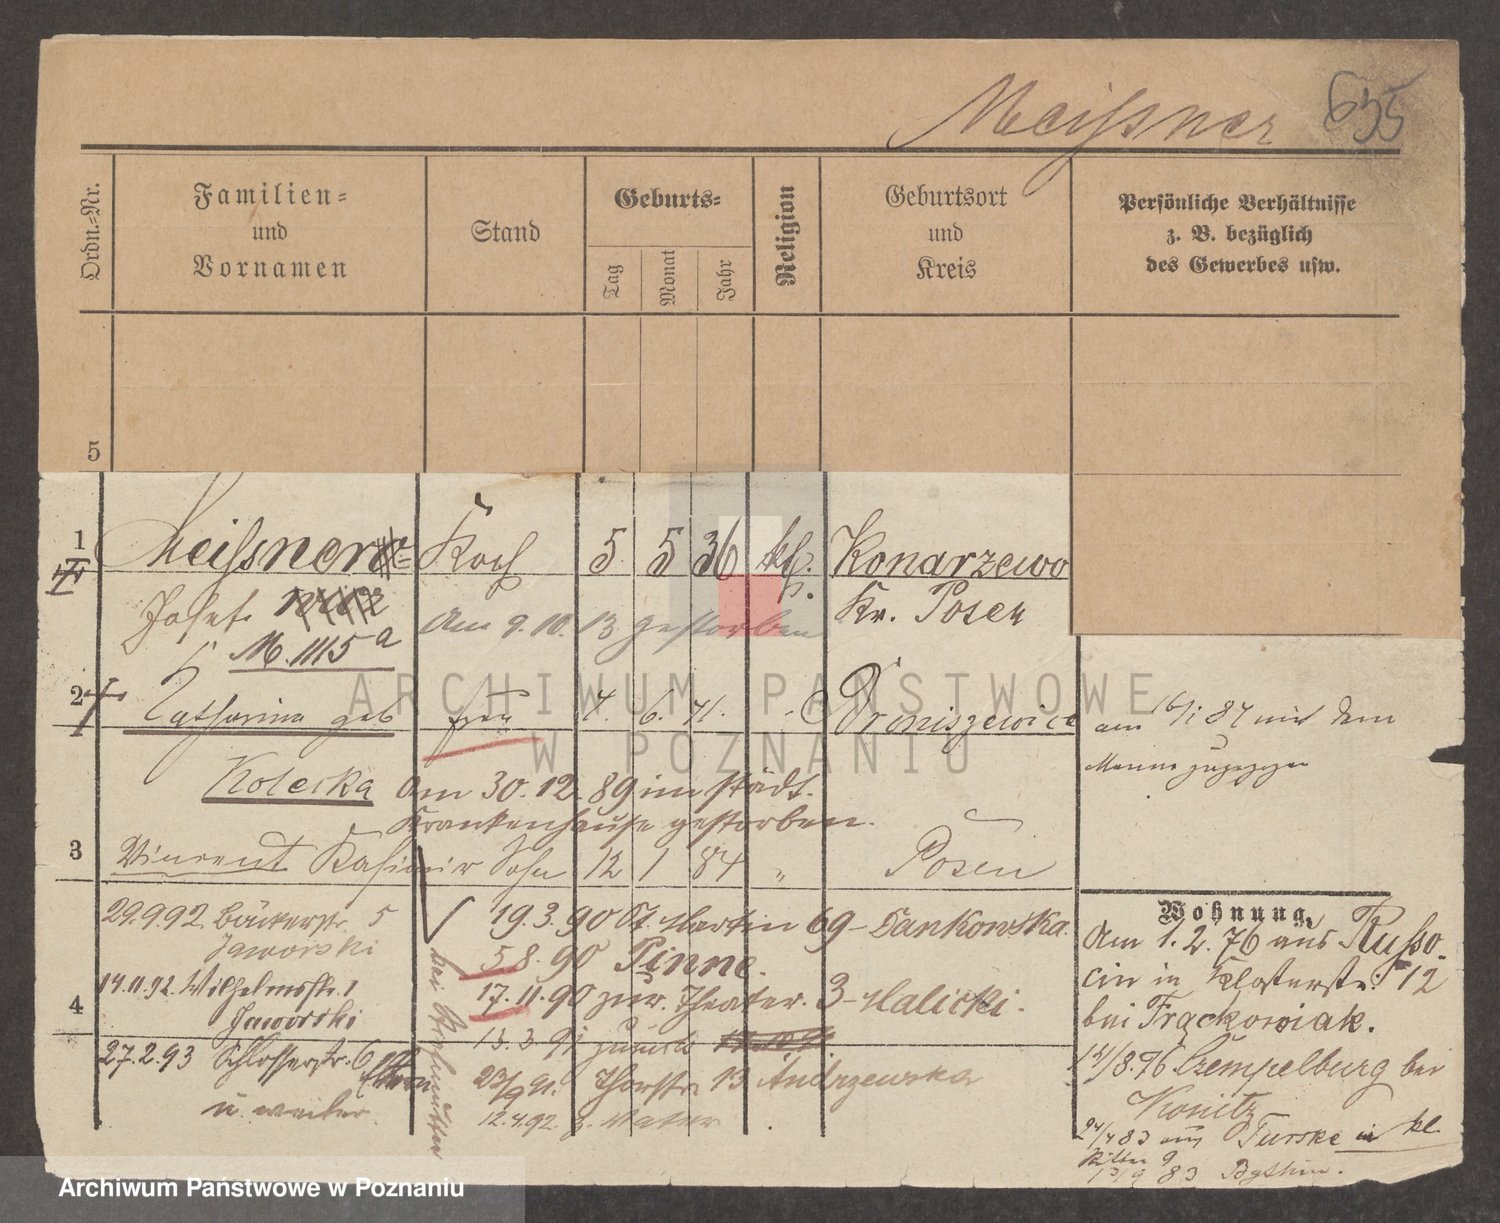 Meißner 635
Ordn.-Nr.
Familien-
und
Vornamen
Stand
Geburts-
Tag
Monat
Jahr
Religion
Geburtsort
und
Kreis
Persönliche Verhältnisse
z. B. bezüglich
des Gewerbes usw.
5
1 Meißner Koch 5 5 36 kth. Konarzewo
Josef Kr. Posen
Am 9.10.13 gestorben
M. 1115a
2 Katharina geb frau 4. 6. 41. Wroniszewice
am 16/1 84 mit dem
Manne zugezogen
Kolecka Am 30.12.89 im städt.
Krankenhause gestorben.
3 Vincent Kasimir Sohn 12 1 84 " Posen
29.9.92 Bäckerstr. 5
Jaworski
14.11.92 Wilhelmstr. 1
Jaworski
4
27.2.93 Schlosserstr. 6
u. weiter
19.3.90 St. Martin 69 – Dankowska.
5.8.90 Pinne.
17.11.90 zur. Theater. 3 – Malicki.
13.3.91 zurück
23/9 91. Thorstr. 13 Andrzewska
12.4.92. z. Vater
Wohnung.
Am 1.2.76 aus Russo-
cin in Klosterstr. 12
bei Frąckowiak.
14/8.76 Czempelburg bei
Konitz
24/7 83 aus Turske in kl
Ritter 9
13/9 83
ARCHIWUM PAŃSTWOWE
W POZNANIU
Archiwum Państwowe w Poznaniu